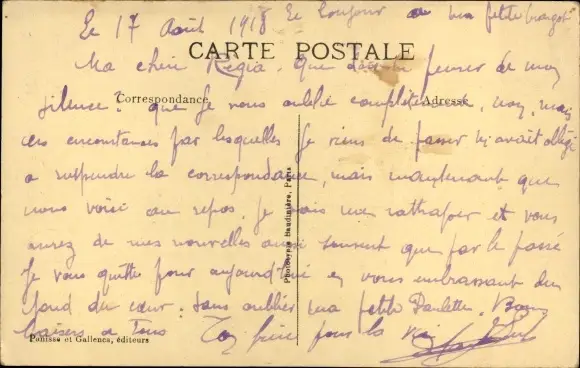 Le 17 Août 1918 Le bonjour a ma petite
CARTE POSTALE
Ma chère Régia. Que penser de mon
Correspondance Adresse
silence? que je vous oublie complètement, non, mais
ces circonstances par lesquelles je viens de passer m'avait obligé
a suspendre la correspondance, mais maintenant que
nous voici au repos. Je vais me rattraper et vous
aurez de mes nouvelles aussi souvent que par le passé
Je vous quitte pour aujourd'hui en vous embrassant du
fond du cœur. sans oublier ma petite Paulette. Bons
baisers a Tous Ton frère pour la vie
Panisse et Gallenca, éditeurs
Phototypie Baudinière, Paris